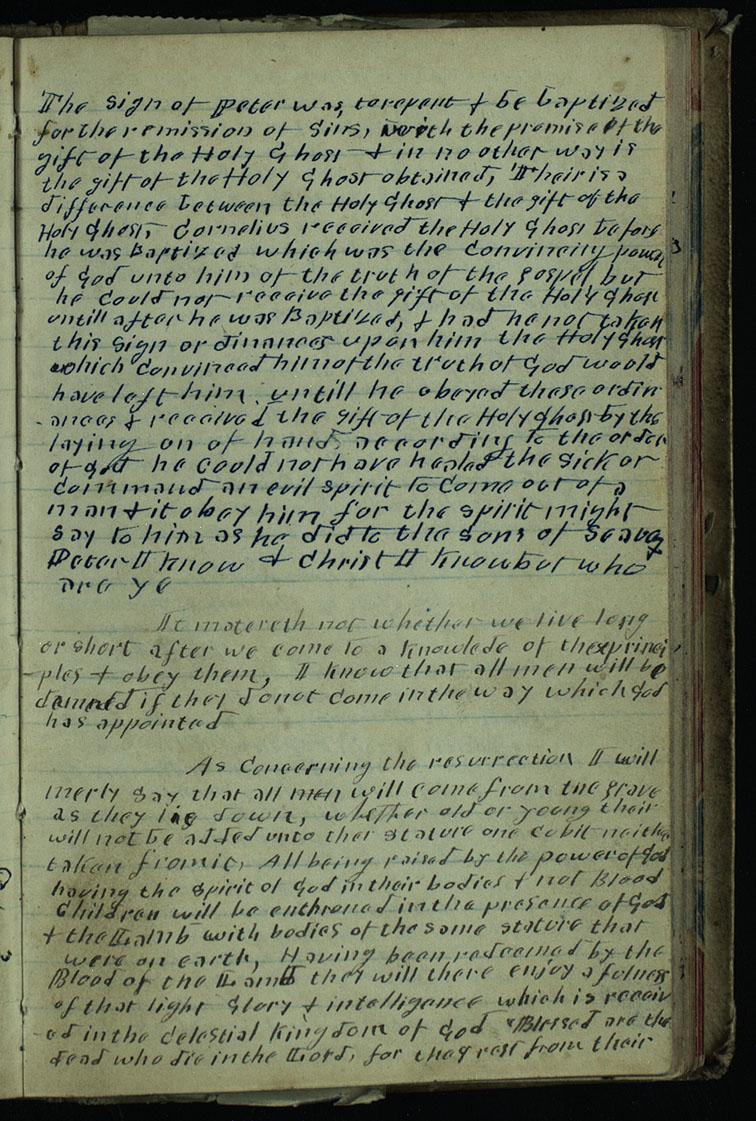 The sign of Peter was, to repent & be baptized
for the remission of Sins, with the promise of the
gift of the Holy Ghost & in no other way is
the gift of the Holy Ghost obtained, Their is a
difference between the Holy Ghost & the gift of the
Holy Ghost, Cornelius received the Holy Ghost before
he was Baptized which was the convincing power
of God unto him of the truth of the gospel but
he could not receive the gift of the Holy Ghost
untill after he was Baptized, & had he not taken
this sign ordinances upon him the Holy Ghost
which convinced him of the truth of God would
have left him. untill he obeyed these ordin
-ances & received the gift of the Holy ghost by the
laying on of hands according to the order
of God he could not have healed the sick or
command an evil spirit to come out of a
man & it obey him for the spirit might
say to him as he did to the sons of Seava
Peter I know & Christ I know but who
are ye
It matereth not whether we live long
or short after we come to a knowlede of these princi
ples & obey them, I know that all men will be
damned if they do not come in the way which God
has appointed
As concerning the resurrection I will
merly say that all men will come from the grave
as they lie down, whether old or young their
will not be added unto ther stature one cubit neither
taken from it, All being raised by the power of God
having the spirit of God in their bodies & not Blood
Children will be enthroned in the presence of God
& the Lamb with bodies of the same stature that
were on earth, Having been redeemed by the
Blood of the Lamb they will there enjoy a fulness
of that light Glory & intelligence which is receiv
-ed in the celestial kingdom of God "Blessed are the
dead who die in the Lord, for they rest from their